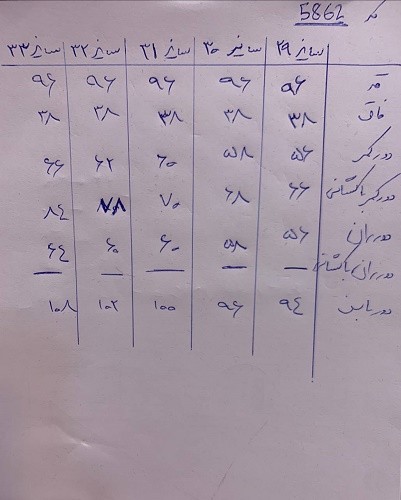 کد 5862
سایز ۲۹ سایز ۳۰ سایز ۳۱ سایز ۳۲ سایز ۳۳
قد ۹۶ ۹۶ ۹۶ ۹۶ ۹۶
فاق ۳۸ ۳۸ ۳۸ ۳۸ ۳۸
دور کمر ۵۶ ۵۸ ۶۰ ۶۲ ۶۶
دور کمر باکشانی ۶۶ ۶۸ ۷۰ ۷۸ ۸۴
دور ران ۵۶ ۵۸ ۶۰ ۶۰ ۶۴
دور ران باکشانی — — — — —
دور باسن ۹۴ ۹۶ ۱۰۰ ۱۰۲ ۱۰۸